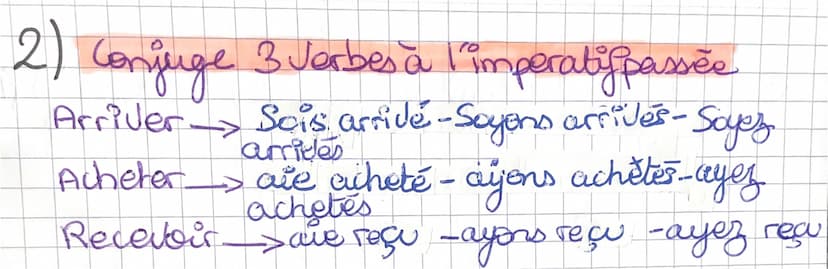 2) Conjuge 3 Verbes à l'imperatif passée
Arriver → Sois arrivé - Soyons arrivés - Soyez
arrivés
Acheter → aie acheté - ayons achetés - ayez
achetés
Recevoir → aie reçu - ayons reçu - ayez reçu